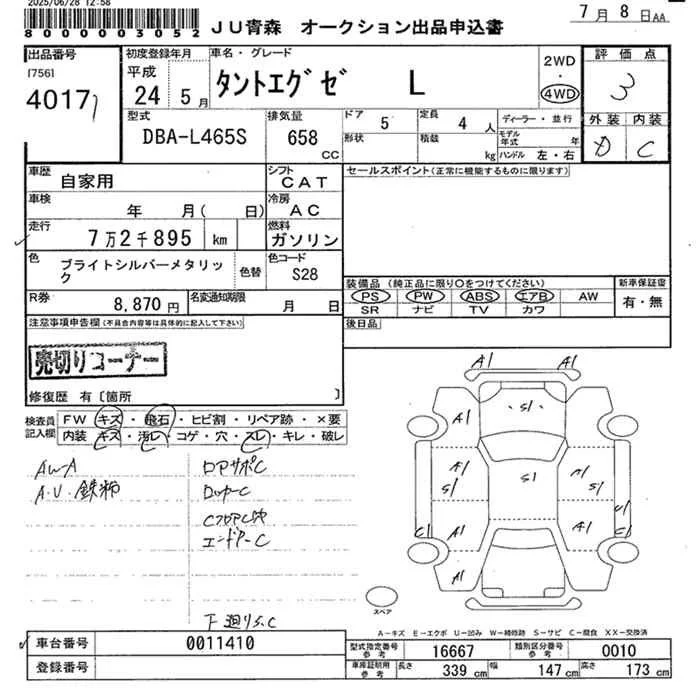 2025/06/28 12:58
8000003052
JU青森 オークション出品申込書
7月8日AA
出品番号
[756]
初度登録年月
平成
24 5月
車名・グレード
タントエグゼ L
2WD
・
4WD
評価点
3
外装 内装
D C
型式
DBA-L465S
排気量
658
CC
ドア
5
形状
定員
4 人
積載
kg
ディーラー・並行
モデル年式 年
ハンドル 左・右
車歴
自家用
シフト
CAT
セールスポイント(正常に機能するものに限ります)
車検
年 月( 日)
冷房
AC
走行
7万2千895 km
燃料
ガソリン
色
ブライトシルバーメタリック
色替
色コード
S28
装備品(純正品に限り○をつけてください)
PS PW ABS エアB AW
SR ナビ TV カワ
新車保証書
有・無
R券
8,870円
名変通知期限
月 日
後日品
注意事項申告欄(不具合内容等は具体的に記入して下さい)
売切りコーナー
修復歴 有〔箇所 〕
検査員記入欄
FW キズ・飛石・ヒビ割・リペア跡・×要
内装・キズ・汚レ・コゲ・穴・スレ・キレ・破レ
AW-A
ロアサポC
ロッカーC
エンドアーC
下廻りS.C
A1 A1
S1
A1
A1 A1
S1 S1 S1
A1 A1
C1
A1
スペア
A-キズ E-エクボ U-凹み W-補修跡 S-サビ C-腐食 XX-交換済
車台番号
0011410
登録番号
型式指定番号
参考
16667
類別区分番号
参考
0010
車庫証明用
参考
長さ
339 cm
幅
147 cm
高さ
173 cm